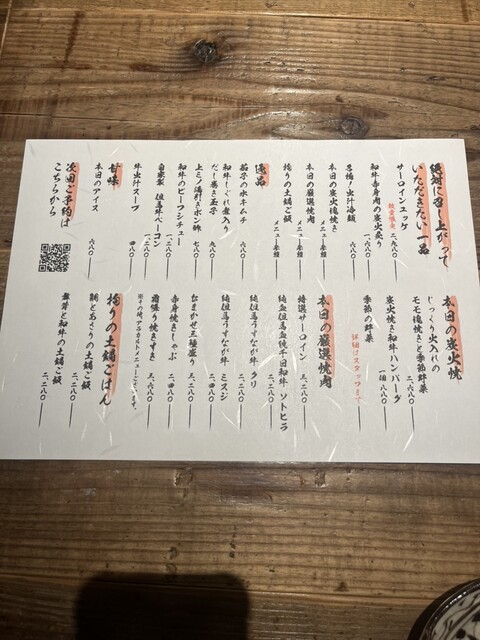 絶対に召し上がって
いただきたい一品
サーロインユッケ
数量限定 二、九八〇
和牛赤身肉の炭火炙り
一、六八〇
名物!出汁冷麺
本日の炭火塊焼き
メニュー参照
本日の厳選焼肉
メニュー参照
拘りの土鍋ご飯
メニュー参照
逸品
茄子の水キムチ
六八〇
和牛しぐれ煮入り
だし巻き玉子
九八〇
上ミノ湯引きポン酢
七八〇
和牛のビーフシチュー
一、二八〇
自家製 但馬牛ベーコン
一、二八〇
牛出汁スープ
四八〇
甘味
本日のアイス
六八〇
次回ご予約は
こちらから
本日の炭火焼
じっくり火入れの
モモ塊焼きと季節野菜
二、九八〇
炭火焼き和牛ハンバーグ
一個 八八〇
季節の野菜
詳細はスタッフまで
本日の厳選焼肉
特選サーロイン
三、二八〇
純血但馬血統千日和牛 ソトヒラ
二、二八〇
純但馬うすなが牛 クリ
二、二八〇
純但馬うすなが牛 ミスジ
二、四八〇
おまかせ三種盛り
三、二八〇
赤身焼きしゃぶ
二、四八〇
霜降り焼きすき
三、六八〇
※その他、アラカルトメニューございます。
拘りの土鍋ごはん
鯛とあさりの土鍋ご飯
二、二八〇
舞茸と和牛の土鍋ご飯
二、二八〇